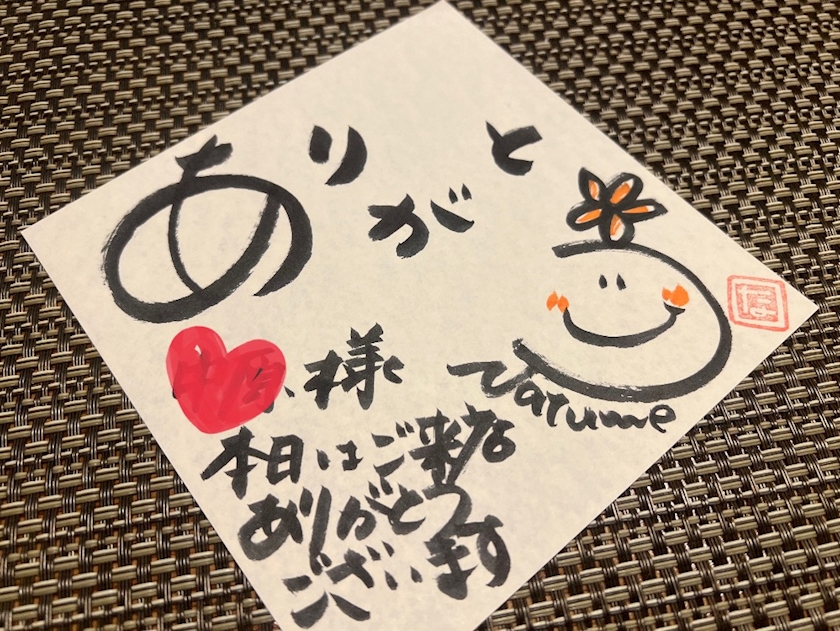 ありがとう
様
本日はご来店
ありがとう
ございます